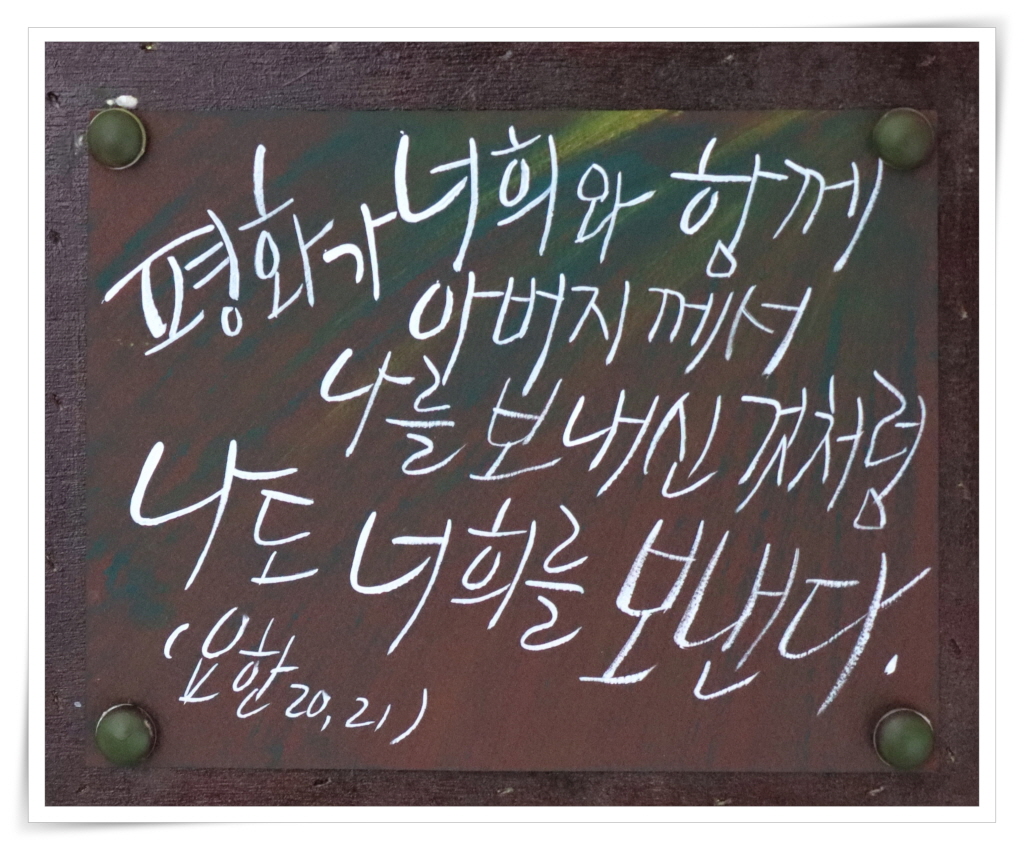 평화가 너희와 함께
아버지께서
나를 보내신 것처럼
나도 너희를 보낸다.
(요한 20,21)